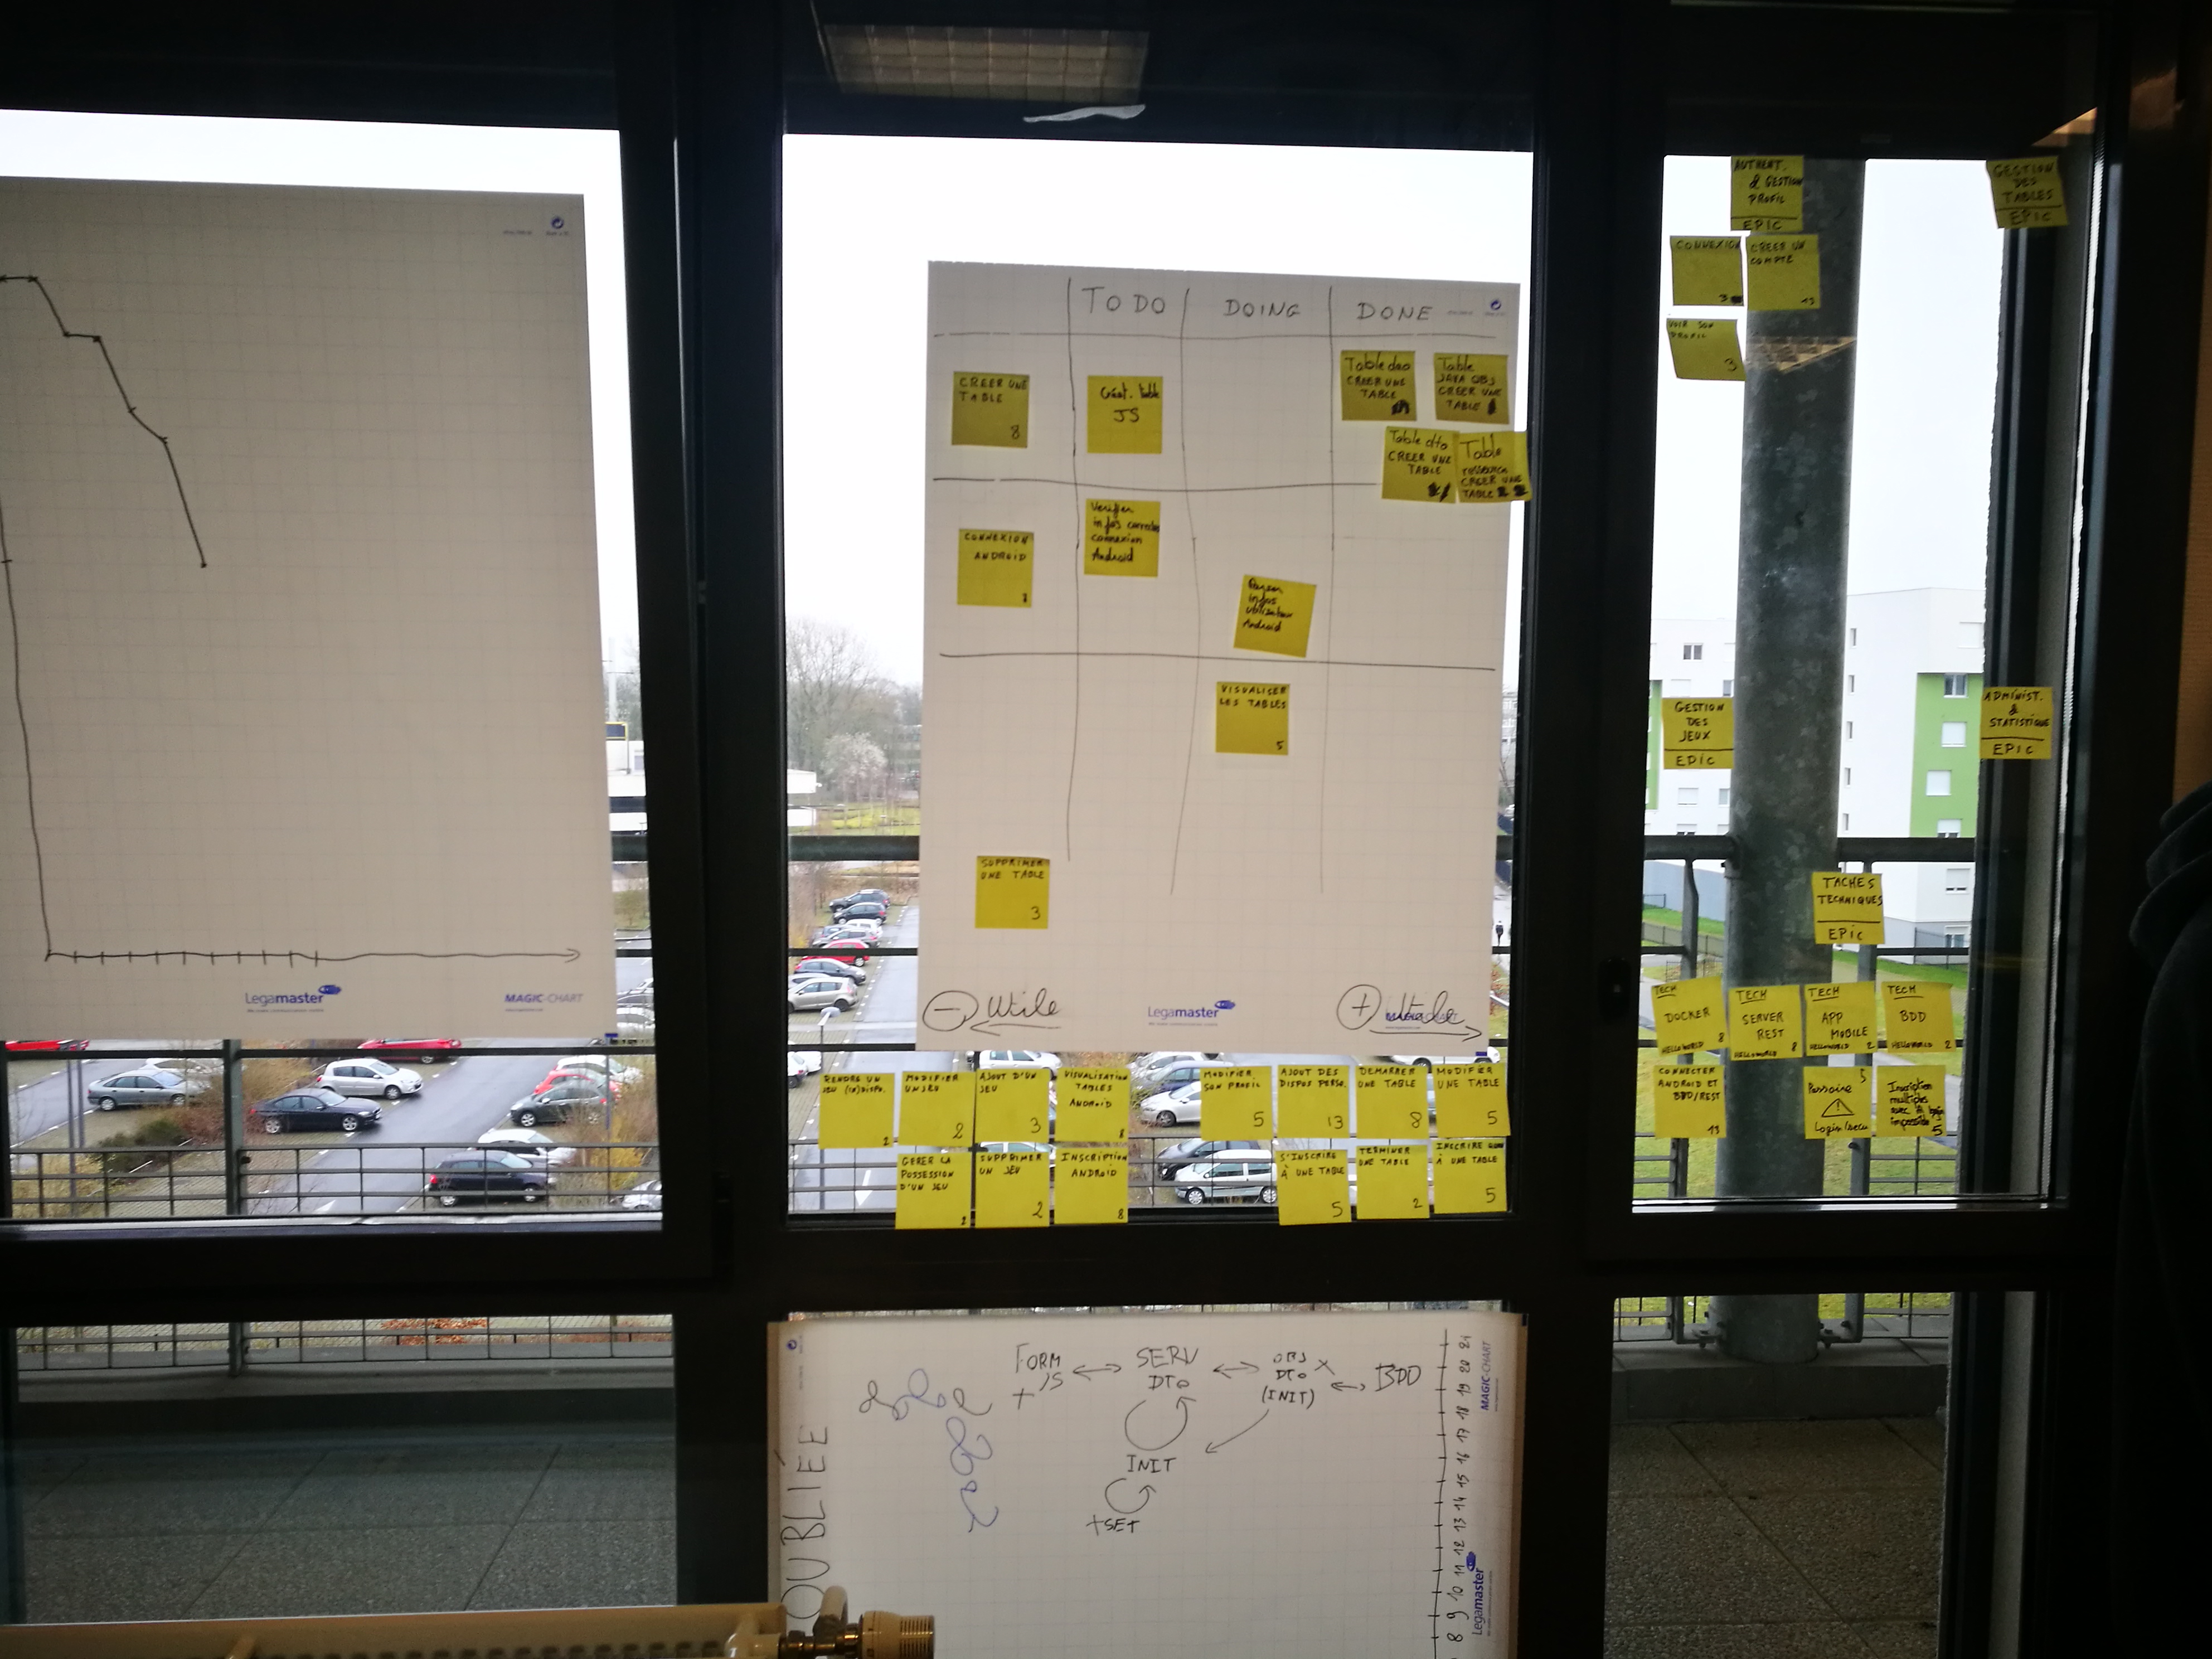 TO DO
DOING
DONE
CREER UNE
TABLE
8
Créat. table
JS
Table dao
CREER UNE
TABLE
Table
JAVA OBJ
CREER UNE
TABLE
Table dto
CREER UNE
TABLE
Table
ressource
CREER UNE
TABLE
CONNEXION
ANDROID
Verifier
infos correctes
connexion
Android
infos
utilisateur
Android
VISUALISER
LES TABLES
5
SUPPRIMER
UNE TABLE
3
- Utile
Legamaster
+ Utile
Legamaster
MAGIC-CHART
RENDRE UN
JEU (IN)DISPO.
2
MODIFIER
UN JEU
2
AJOUT D'UN
JEU
3
VISUALISATION
TABLES
ANDROID
8
MODIFIER
SON PROFIL
5
AJOUT DES
DISPOS PERSO.
13
DEMARRER
UNE TABLE
8
MODIFIER
UNE TABLE
5
GERER LA
POSSESSION
D'UN JEU
2
SUPPRIMER
UN JEU
2
INSCRIPTION
ANDROID
8
S'INSCRIRE
À UNE TABLE
5
TERMINER
UNE TABLE
2
INSCRIRE
À UNE TABLE
5
AUTHENT.
& GESTION
PROFIL
EPIC
GESTION
DES
TABLES
EPIC
CONNEXION
3
CREER UN
COMPTE
13
VOIR SON
PROFIL
3
GESTION
DES
JEUX
EPIC
ADMINIST.
&
STATISTIQUE
EPIC
TACHES
TECHNIQUES
EPIC
TECH
DOCKER
8
HELLOWORLD
TECH
SERVER
REST
HELLOWORLD 8
TECH
APP
MOBILE
HELLOWORLD 2
TECH
BDD
HELLOWORLD 2
CONNECTER
ANDROID ET
BDD/REST
13
5
Passoire
!
Login/secu
Inscription
multiples
impossible
5
OUBLIÉE
FORM
JS
+
SERV
DTO
OBJ
DTO
(INIT)
BDD
INIT
+SET
8 9 10 11 12 13 14 15 16 17 18 19 20 21
MAGIC-CHART
Legamaster